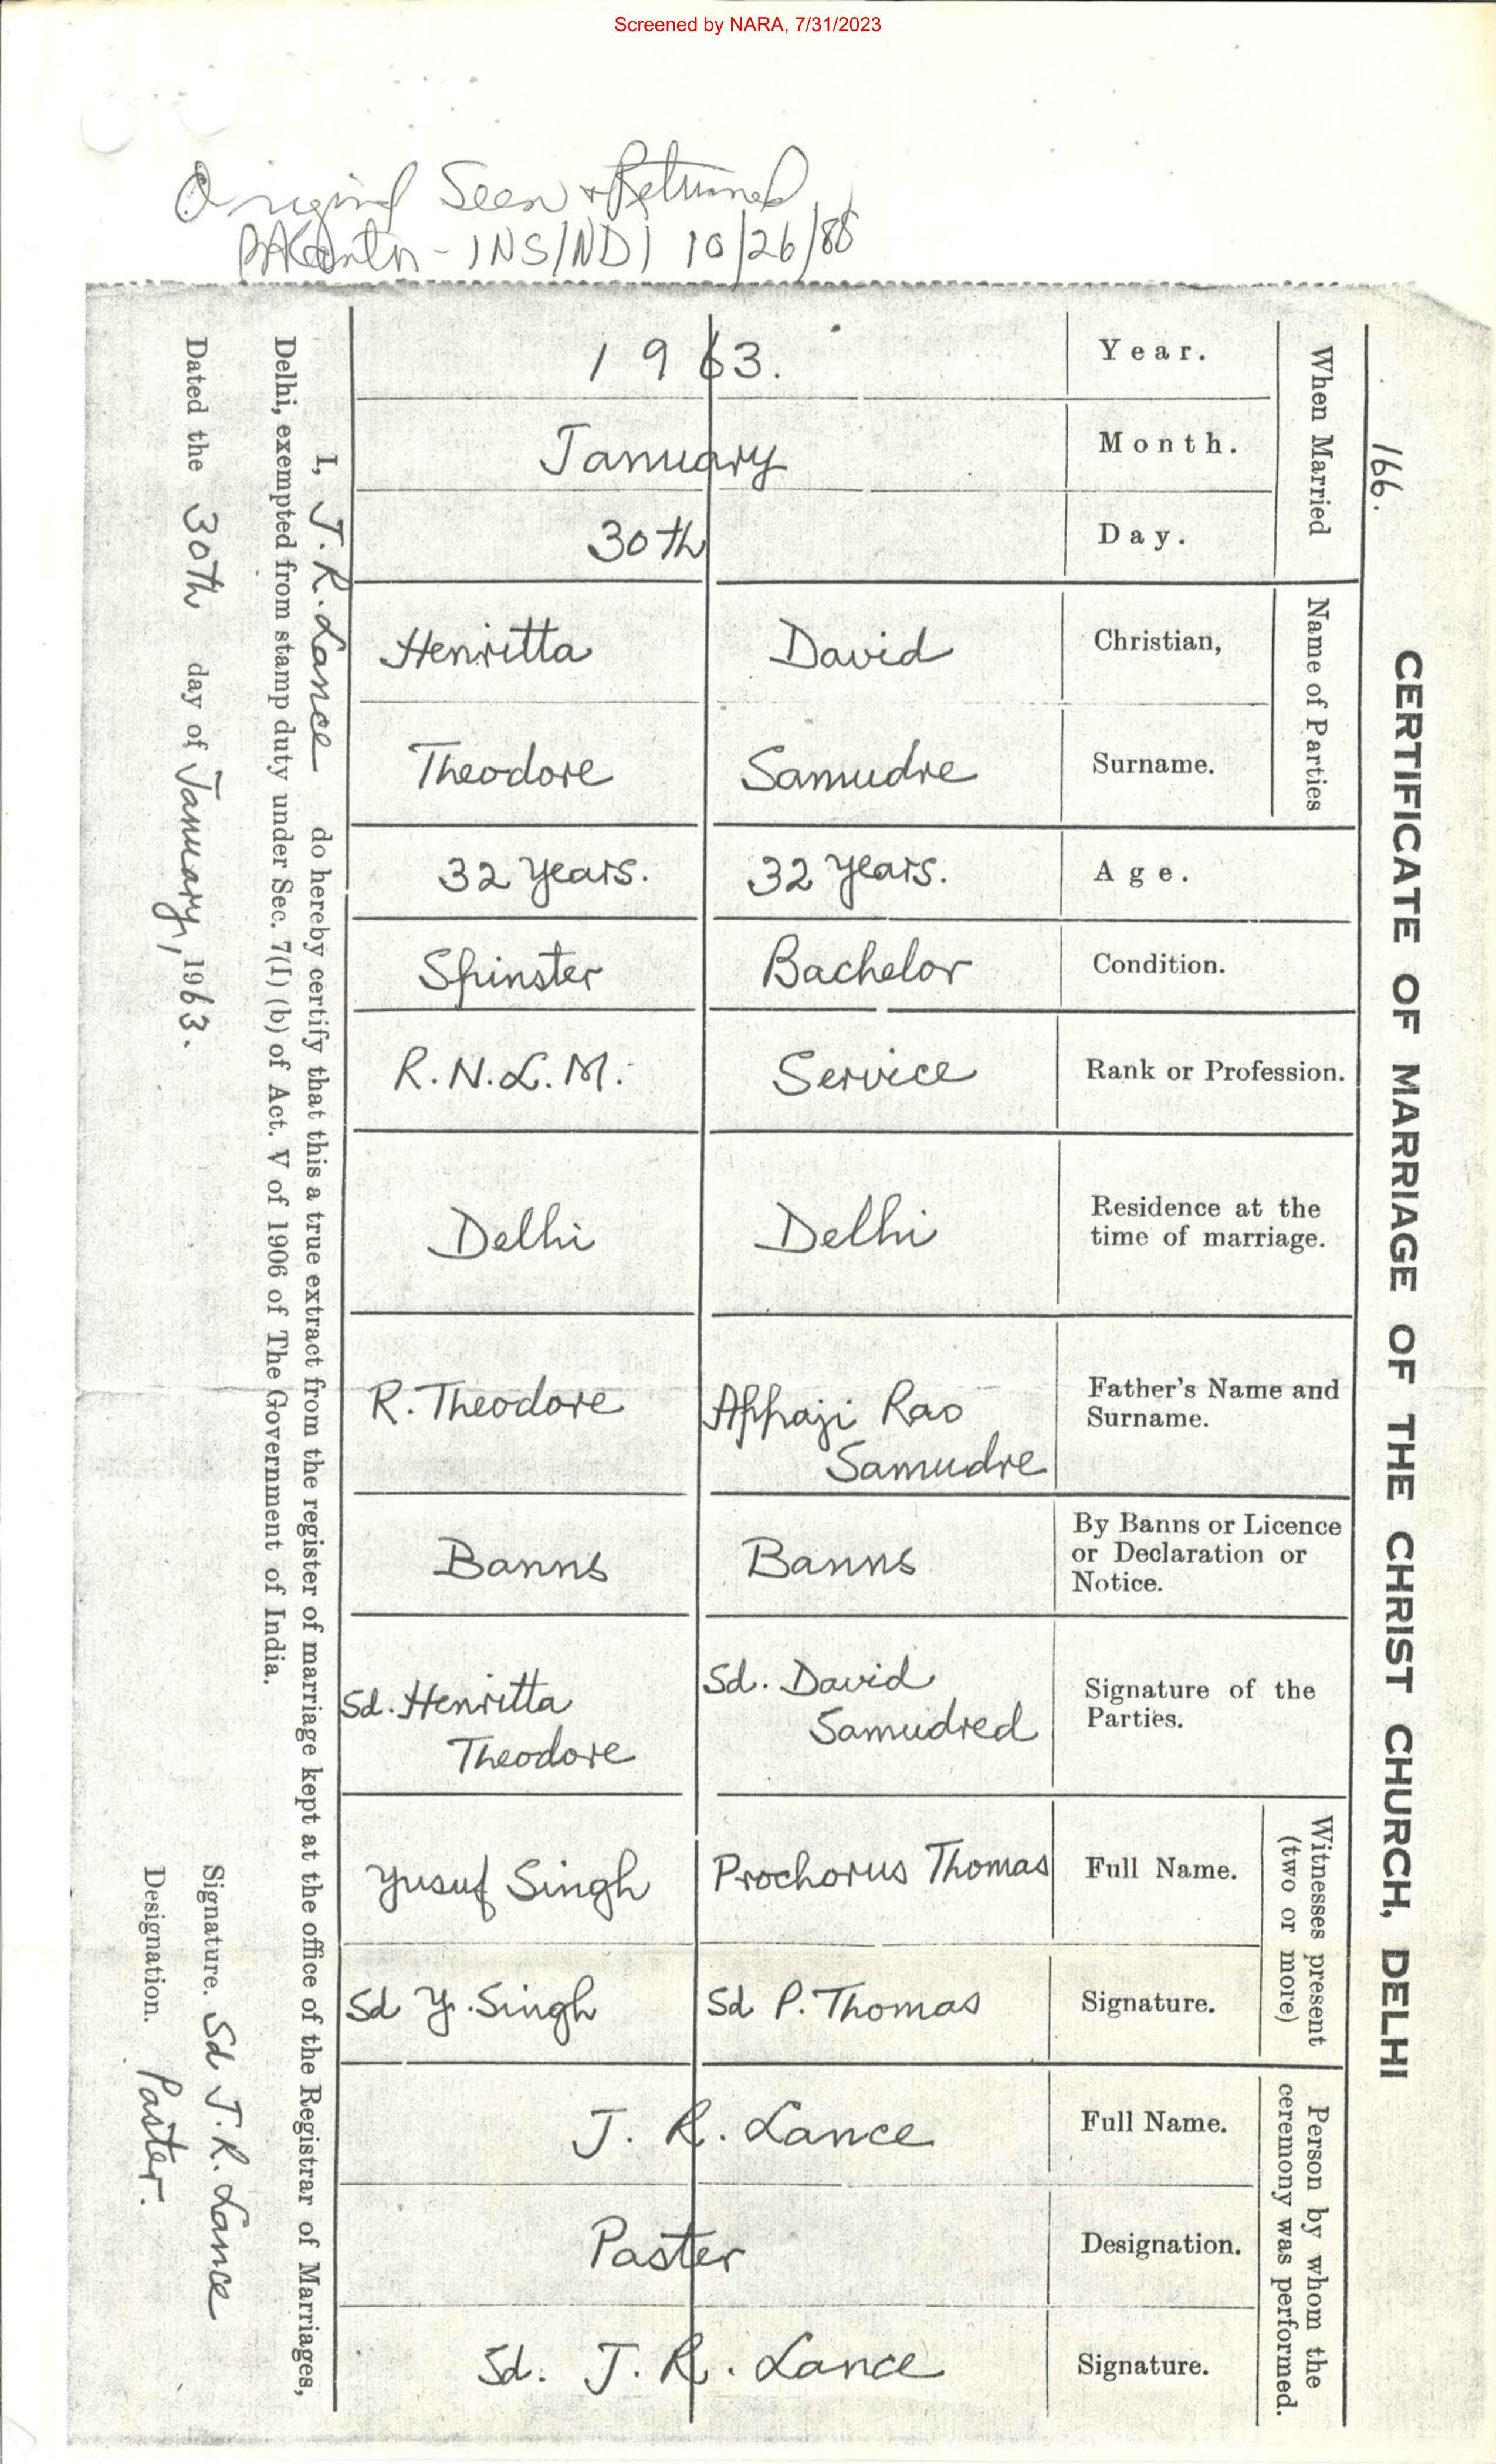 Screened by NARA, 7/31/2023
Original Seen + Returned
INS/NDI 10/26/88
166.
CERTIFICATE OF MARRIAGE OF THE CHRIST CHURCH, DELHI
When Married
Year.
1963.
Month.
January
Day.
30th
Name of Parties
Christian,
David
Henritta
Surname.
Samudre
Theodore
Age.
32 years.
32 years.
Condition.
Bachelor
Spinster
Rank or Profession.
Service
R.N.L.M.
Residence at the
time of marriage.
Delhi
Delhi
Father's Name and
Surname.
Appaji Rao
Samudre
R. Theodore
By Banns or Licence
or Declaration or
Notice.
Banns
Banns
Signature of the
Parties.
Sd. David
Samudred
Sd. Henritta
Theodore
Witnesses present
(two or more)
Full Name.
Prochorus Thomas
Yusuf Singh
Signature.
Sd P. Thomas
Sd Y. Singh
Person by whom the
ceremony was performed.
Full Name.
J. R. Lance
Designation.
Paster
Signature.
Sd. J. R. Lance
I, J. R. Lance do hereby certify that this a true extract from the register of marriage kept at the office of the Registrar of Marriages,
Delhi, exempted from stamp duty under Sec. 7(1) (b) of Act. V of 1906 of The Government of India.
Dated the 30th day of January, 1963.
Signature. Sd J. R. Lance
Designation. Paster.